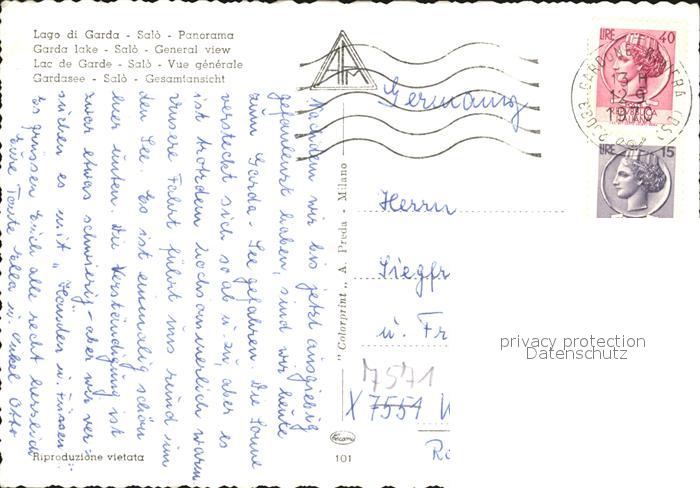 Lago di Garda - Salò - Panorama
Garda lake - Salò - General view
Lac de Garde - Salò - Vue générale
Gardasee - Salò - Gesamtansicht
ATM
Germany
LIRE 40
13-H
12-9
1970
LIRE 15
Nachdem wir bis jetzt ausgiebig
gefaulenzt haben, sind wir heute
zum Garda-See gefahren. Die Sonne
versteckt sich so ab u. zu, aber es
ist trotzdem hochsommerlich warm
Unsere Fahrt führt uns rund um
den See. Es ist einmalig schön
hier unten. Die Verständigung ist
zwar etwas schwierig - aber wir ver-
suchen es mit "Händen u. Füssen".
Es grüssen Euch alle recht herzlich
Eure Tante Ella u. Onkel Otto
"Colorprint„ A. Preda - Milano
Herrn
Siegfr
u. Fr
7571
X 7551 W
Riproduzione vietata
101
privacy protection
Datenschutz